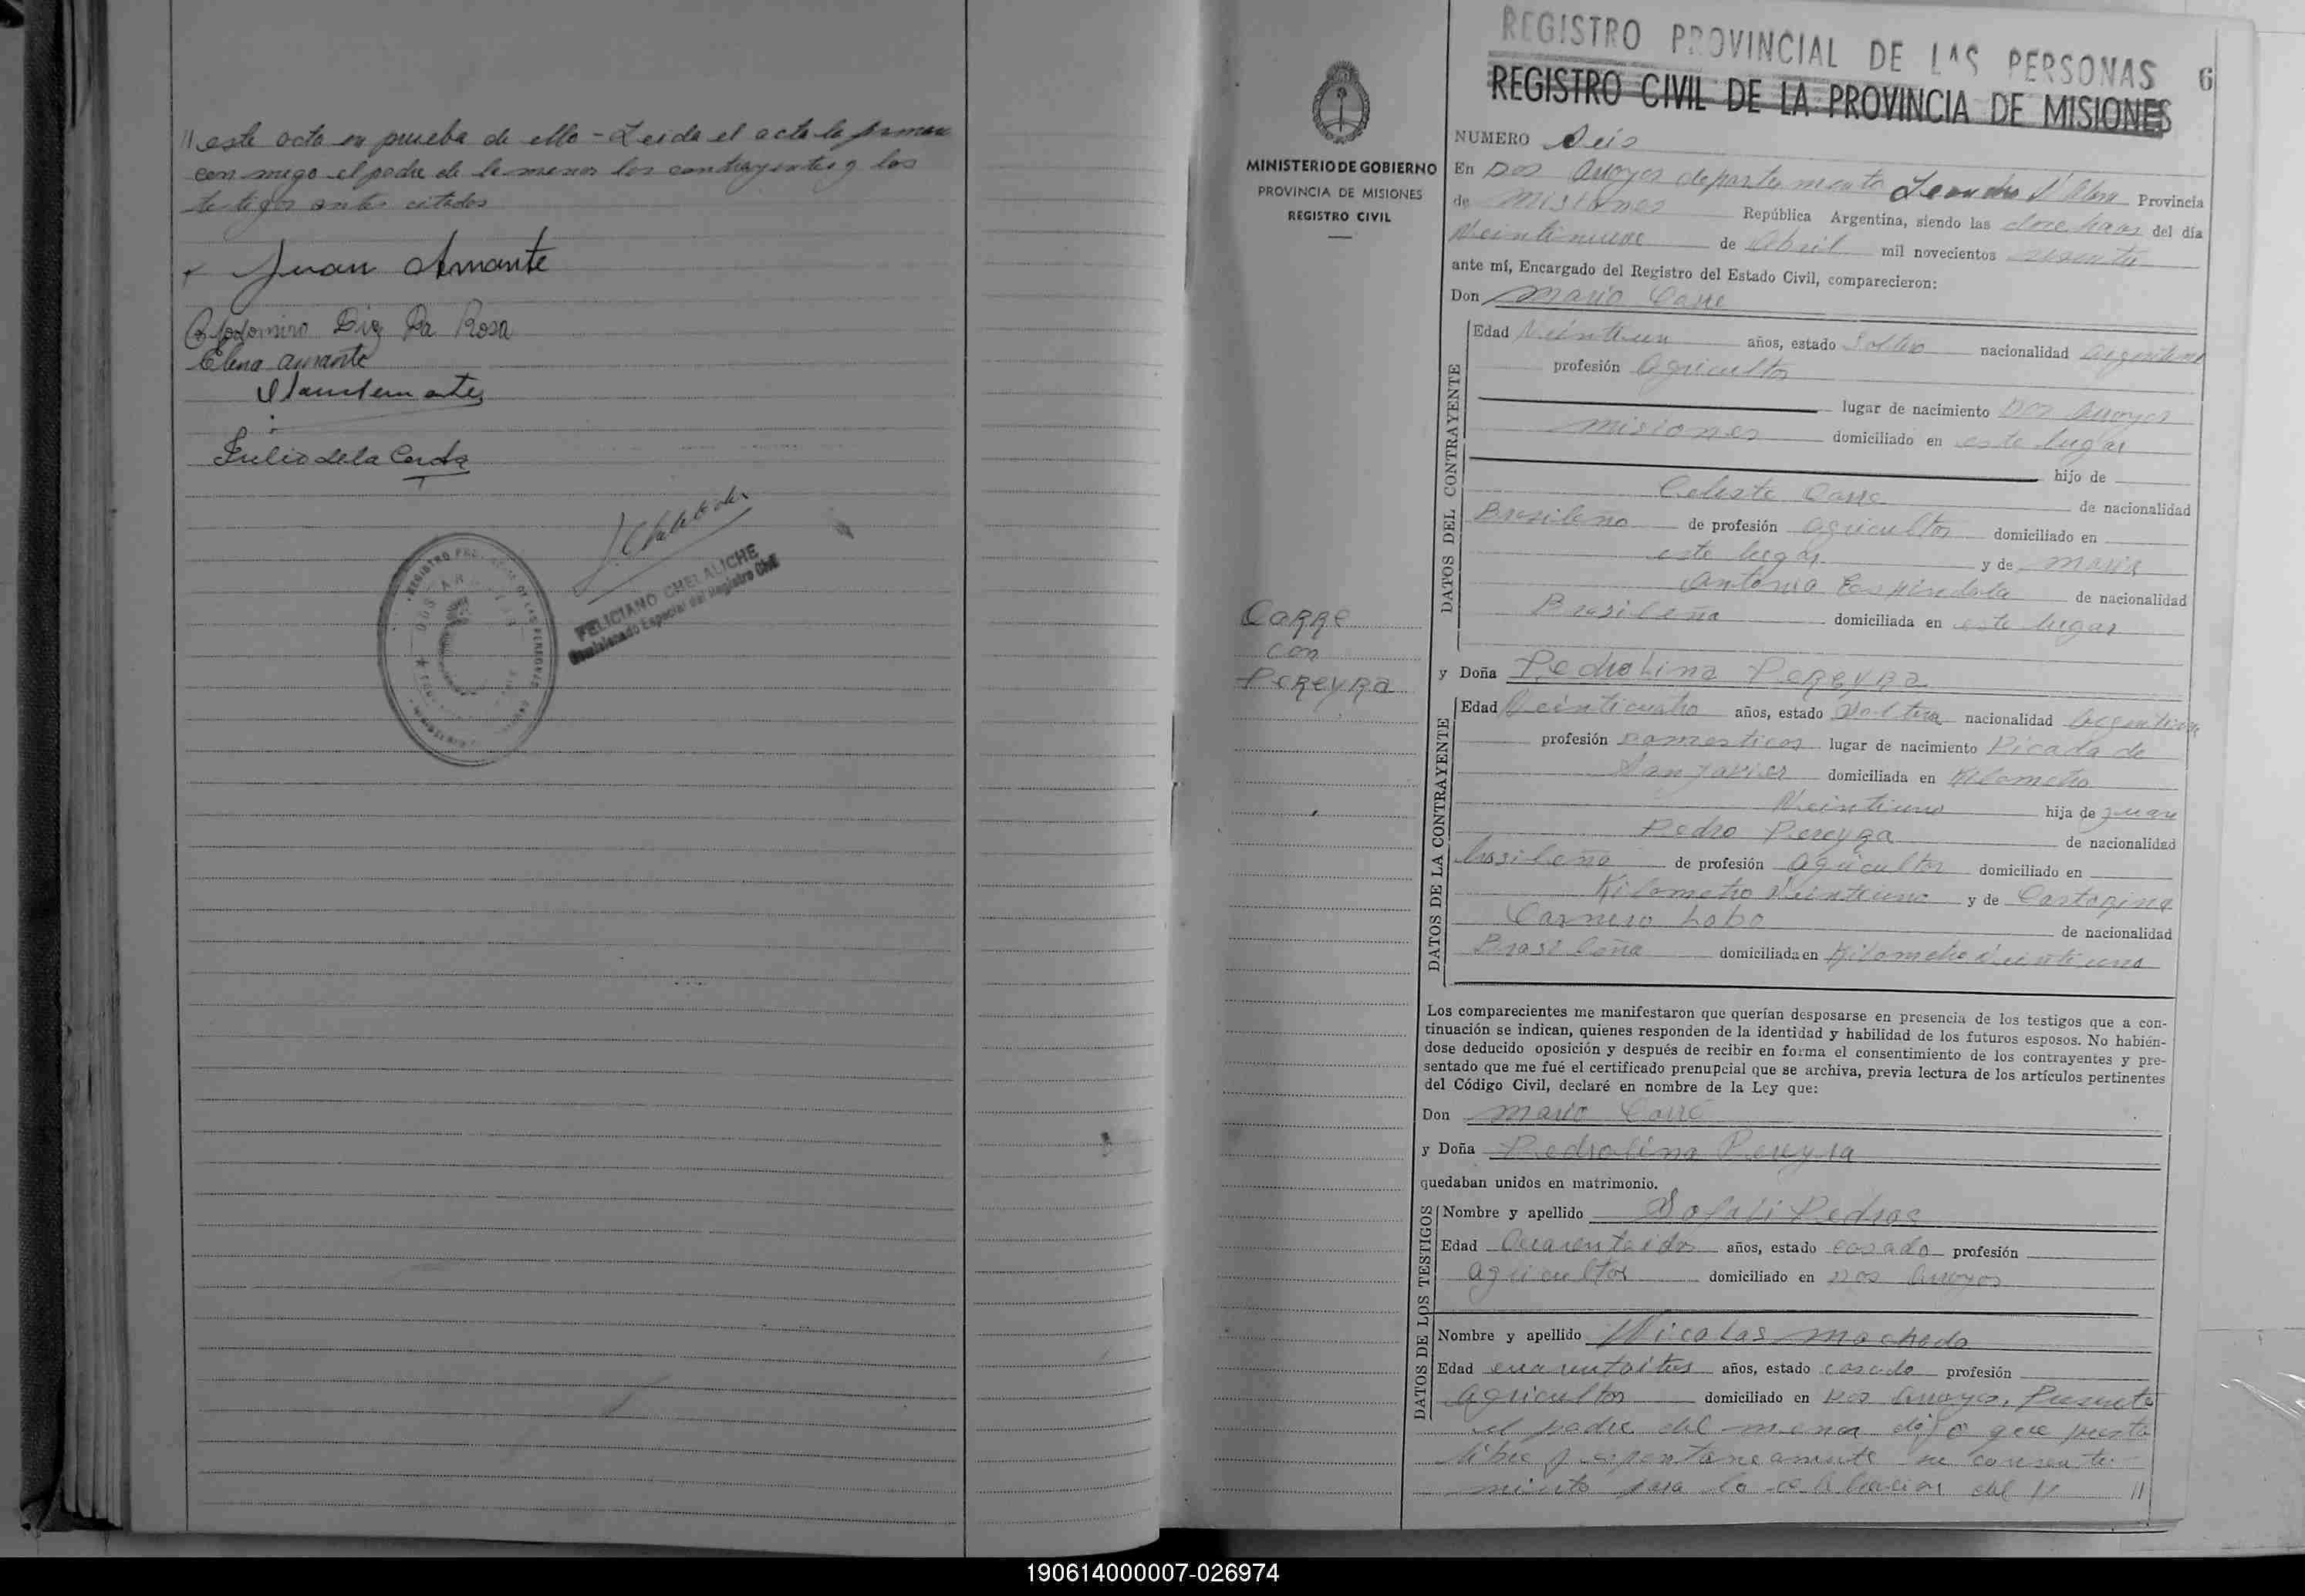 // este acto en prueba de ello - Leida el acta la firman
con migo el padre de la menor los contrayentes y los
testigos antes citados
Juan Amante
Clodomiro Diz Da Rosa
Elena amante
Julio de la Cerda
FELICIANO CHELALICHE
Comisionado Especial del Registro Civil
REGISTRO PROVINCIAL DE LAS PERSONAS
6
REGISTRO CIVIL DE LA PROVINCIA DE MISIONES
MINISTERIO DE GOBIERNO
PROVINCIA DE MISIONES
REGISTRO CIVIL
NUMERO Seis
En Dos Arroyos departamento Leandro N Alem Provincia
de Misiones República Argentina, siendo las doce horas del día
Veintinueve de Abril mil novecientos sesenta
ante mí, Encargado del Registro del Estado Civil, comparecieron:
Don Mario Carre
DATOS DEL CONTRAYENTE
Edad Veintiun años, estado Soltero nacionalidad Argentino
profesión Agricultor
lugar de nacimiento Dos Arroyos
Misiones domiciliado en este lugar
hijo de
Celeste Carre de nacionalidad
Brasileño de profesión agricultor domiciliado en
este lugar y de Maria
Antonia Espindola de nacionalidad
Brasileña domiciliada en este lugar
CARRE
con
PEREYRA
y Doña Pedrolina PEREYRA
DATOS DE LA CONTRAYENTE
Edad Veinticuatro años, estado Soltera nacionalidad Argentina
profesión Domesticos lugar de nacimiento Picada de
San Javier domiciliada en Kilometro
Veintiuno hija de Juan
Pedro Pereyra de nacionalidad
brasileño de profesión agricultor domiciliado en
Kilometro Veintiuno y de Castorina
Carneiro Lobo de nacionalidad
Brasileña domiciliada en Kilometro Veintiuno
Los comparecientes me manifestaron que querían desposarse en presencia de los testigos que a con-
tinuación se indican, quienes responden de la identidad y habilidad de los futuros esposos. No habién-
dose deducido oposición y después de recibir en forma el consentimiento de los contrayentes y pre-
sentado que me fué el certificado prenupcial que se archiva, previa lectura de los artículos pertinentes
del Código Civil, declaré en nombre de la Ley que:
Don Mario Carré
y Doña Pedrolina Pereyra
quedaban unidos en matrimonio.
DATOS DE LOS TESTIGOS
Nombre y apellido Pedroso
Edad Cuarentaidos años, estado casado profesión
agricultor domiciliado en Dos Arroyos
Nombre y apellido Nicolas Machado
Edad cuarentaitres años, estado casado profesión
agricultor domiciliado en Dos Arroyos, Presente
el padre del menor dijo que presta
libre y espontaneamente su consenti-
miento para la celebracion del // //
190614000007-026974